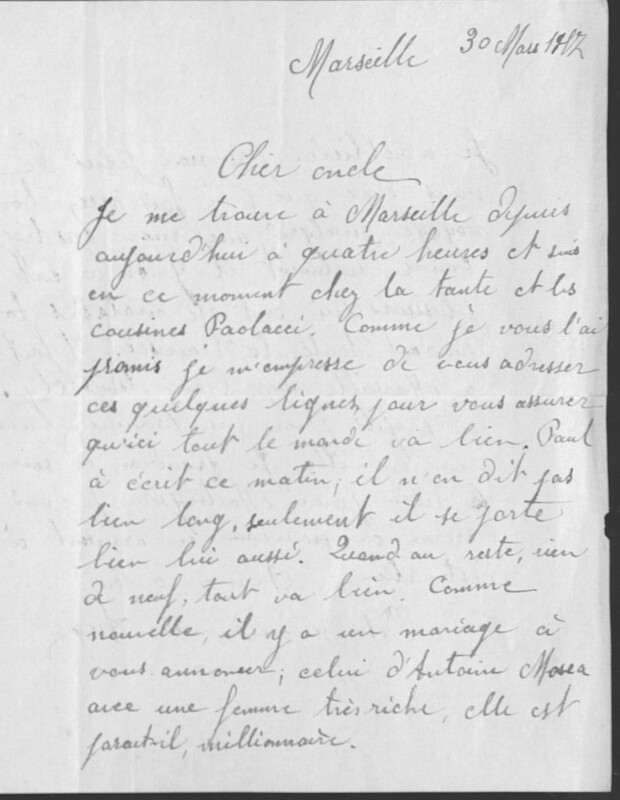 Marseille 30 Mars
Cher oncle
Je me trouve à Marseille depuis
aujourd'hui à quatre heures et suis
en ce moment chez la tante et les
cousines Paolacci. Comme je vous l'ai
promis je m'empresse de vous adresser
ces quelques lignes pour vous assurer
qu'ici tout le monde va bien. Paul
à écrit ce matin, il n'en dit pas
bien long, seulement il se porte
bien lui aussi. Quand au reste, rien
de neuf, tout va bien. Comme
nouvelle, il y a un mariage à
vous annoncer; celui d'Antoine
avec une femme très riche, elle est
parait-il, millionnaire.